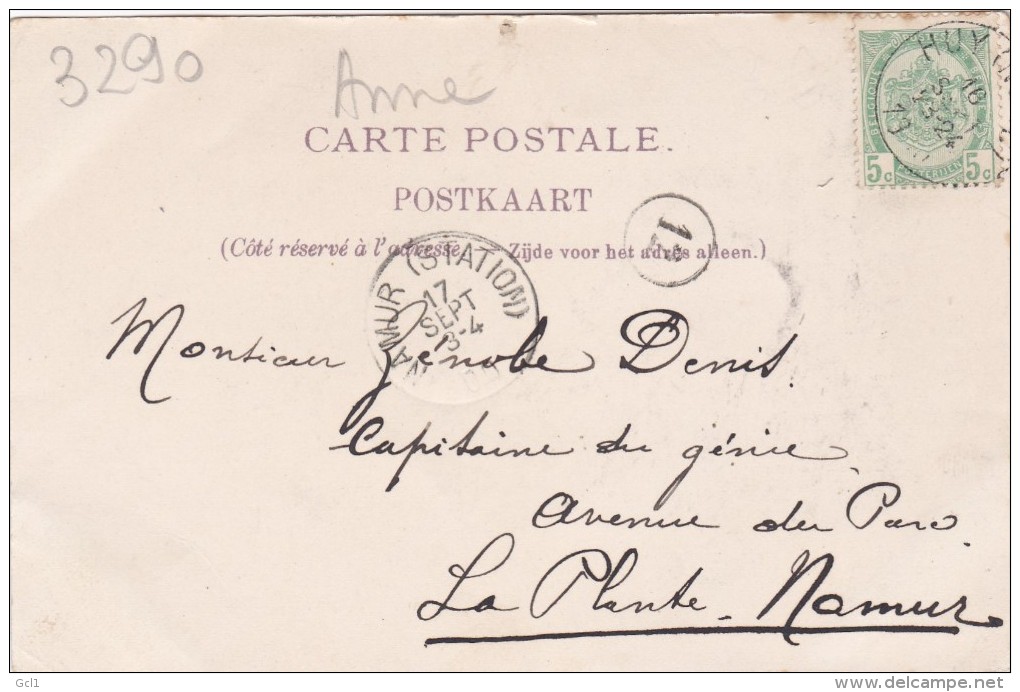 3290
Anne
CARTE POSTALE.
POSTKAART
(Côté réservé à l'adresse. Zijde voor het adres alleen.)
BELGIQUE
POSTERIJEN
5c 5c
HUY
12
NAMUR (STATION)
17
SEPT
3-4
Monsieur Zénobe Denis.
Capitaine du génie
Avenue du Parc.
La Plante - Namur
Gcl1
delcampe.net